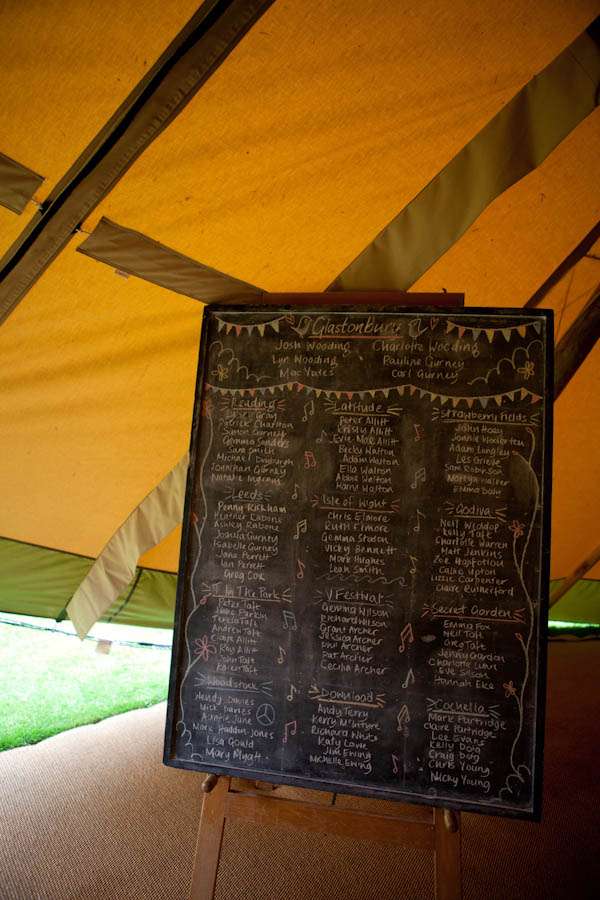 Glastonbury
Josh Wooding Charlotte Wooding
Lyn Wooding Pauline Gurney
Mac Yates Carl Gurney
Reading
Gray
Patrick Charlton
Simon Garnett
Gemma Sanders
Sam Smith
Michael
Johnathan Gurney
Natalie
Leeds
Penny Rickham
Heather Cabins
Ashley Rabone
Joanna Gurney
Isabelle Gurney
Jane Perrett
Ian Perrett
Greg Cox
T In The Park
Peter Taft
Jane Parkin
Teresa Taft
Andrew Taft
Claire Allitt
Ray Allitt
John Taft
Karen Taft
Woodstock
Wendy Davies
Mick Davies
Auntie June
Mark Haddon-Jones
Lisa Gould
Mary
Latitude
Peter Allitt
Kristy Allitt
Evie Mae Allitt
Becky Walton
Adam Walton
Ella Walton
Abbie Walton
Harry Walton
Isle of Wight
Chris Elmore
Ruth Elmore
Gemma Staton
Vicky Bennett
Mark Hughes
Liam Smith
V Festival
Gemma Wilson
Richard Wilson
Grant Archer
Archer
Pat Archer
Cecilia Archer
Download
Andy Terry
Kerry McIntyre
Richard Waits
Katy Love
Jim Ewing
Michelle Ewing
Strawberry Fields
John Hoey
Jonnie
Adam Longley
Les Grieve
Sam Robinson
Walker
Emma Daly
Godiva
Neil Widdop
Kelly Taft
Charlotte Warren
Matt Jenkins
Zoe Hopfotion
Callie Upton
Lizzie Carpenter
Claire Rutherford
Secret Garden
Emma Fox
Neil Taft
Greg Taft
Jenny Gordon
Charlotte Lunn
Eve Silson
Hannah Eke
Coachella
Mark Partridge
Claire Partridge
Lee Evans
Kelly Doig
Craig Doig
Chris Young
Nicky Young